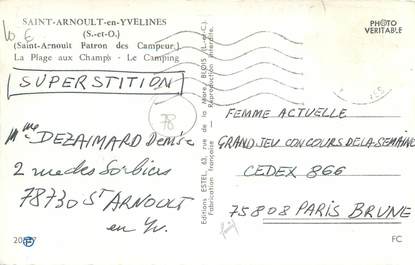 SAINT-ARNOULT-en-YVELINES
(S.-et-O.)
(Saint-Arnoult Patron des Campeurs)
La Plage aux Champs - Le Camping
PHOTO
VERITABLE
SUPERSTITION
78
Mme DEZAIMARD Denise
2 rue des Sorbiers
78730 St ARNOULT
en Yv.
Editions ESTEL, 63, rue de la Mare, BLOIS (L.-et-C.)
Fabrication française Reproduction interdite
FEMME ACTUELLE
GRAND JEU CONCOURS DE LA SEMAINE
CEDEX 866
75808 PARIS BRUNE
FC